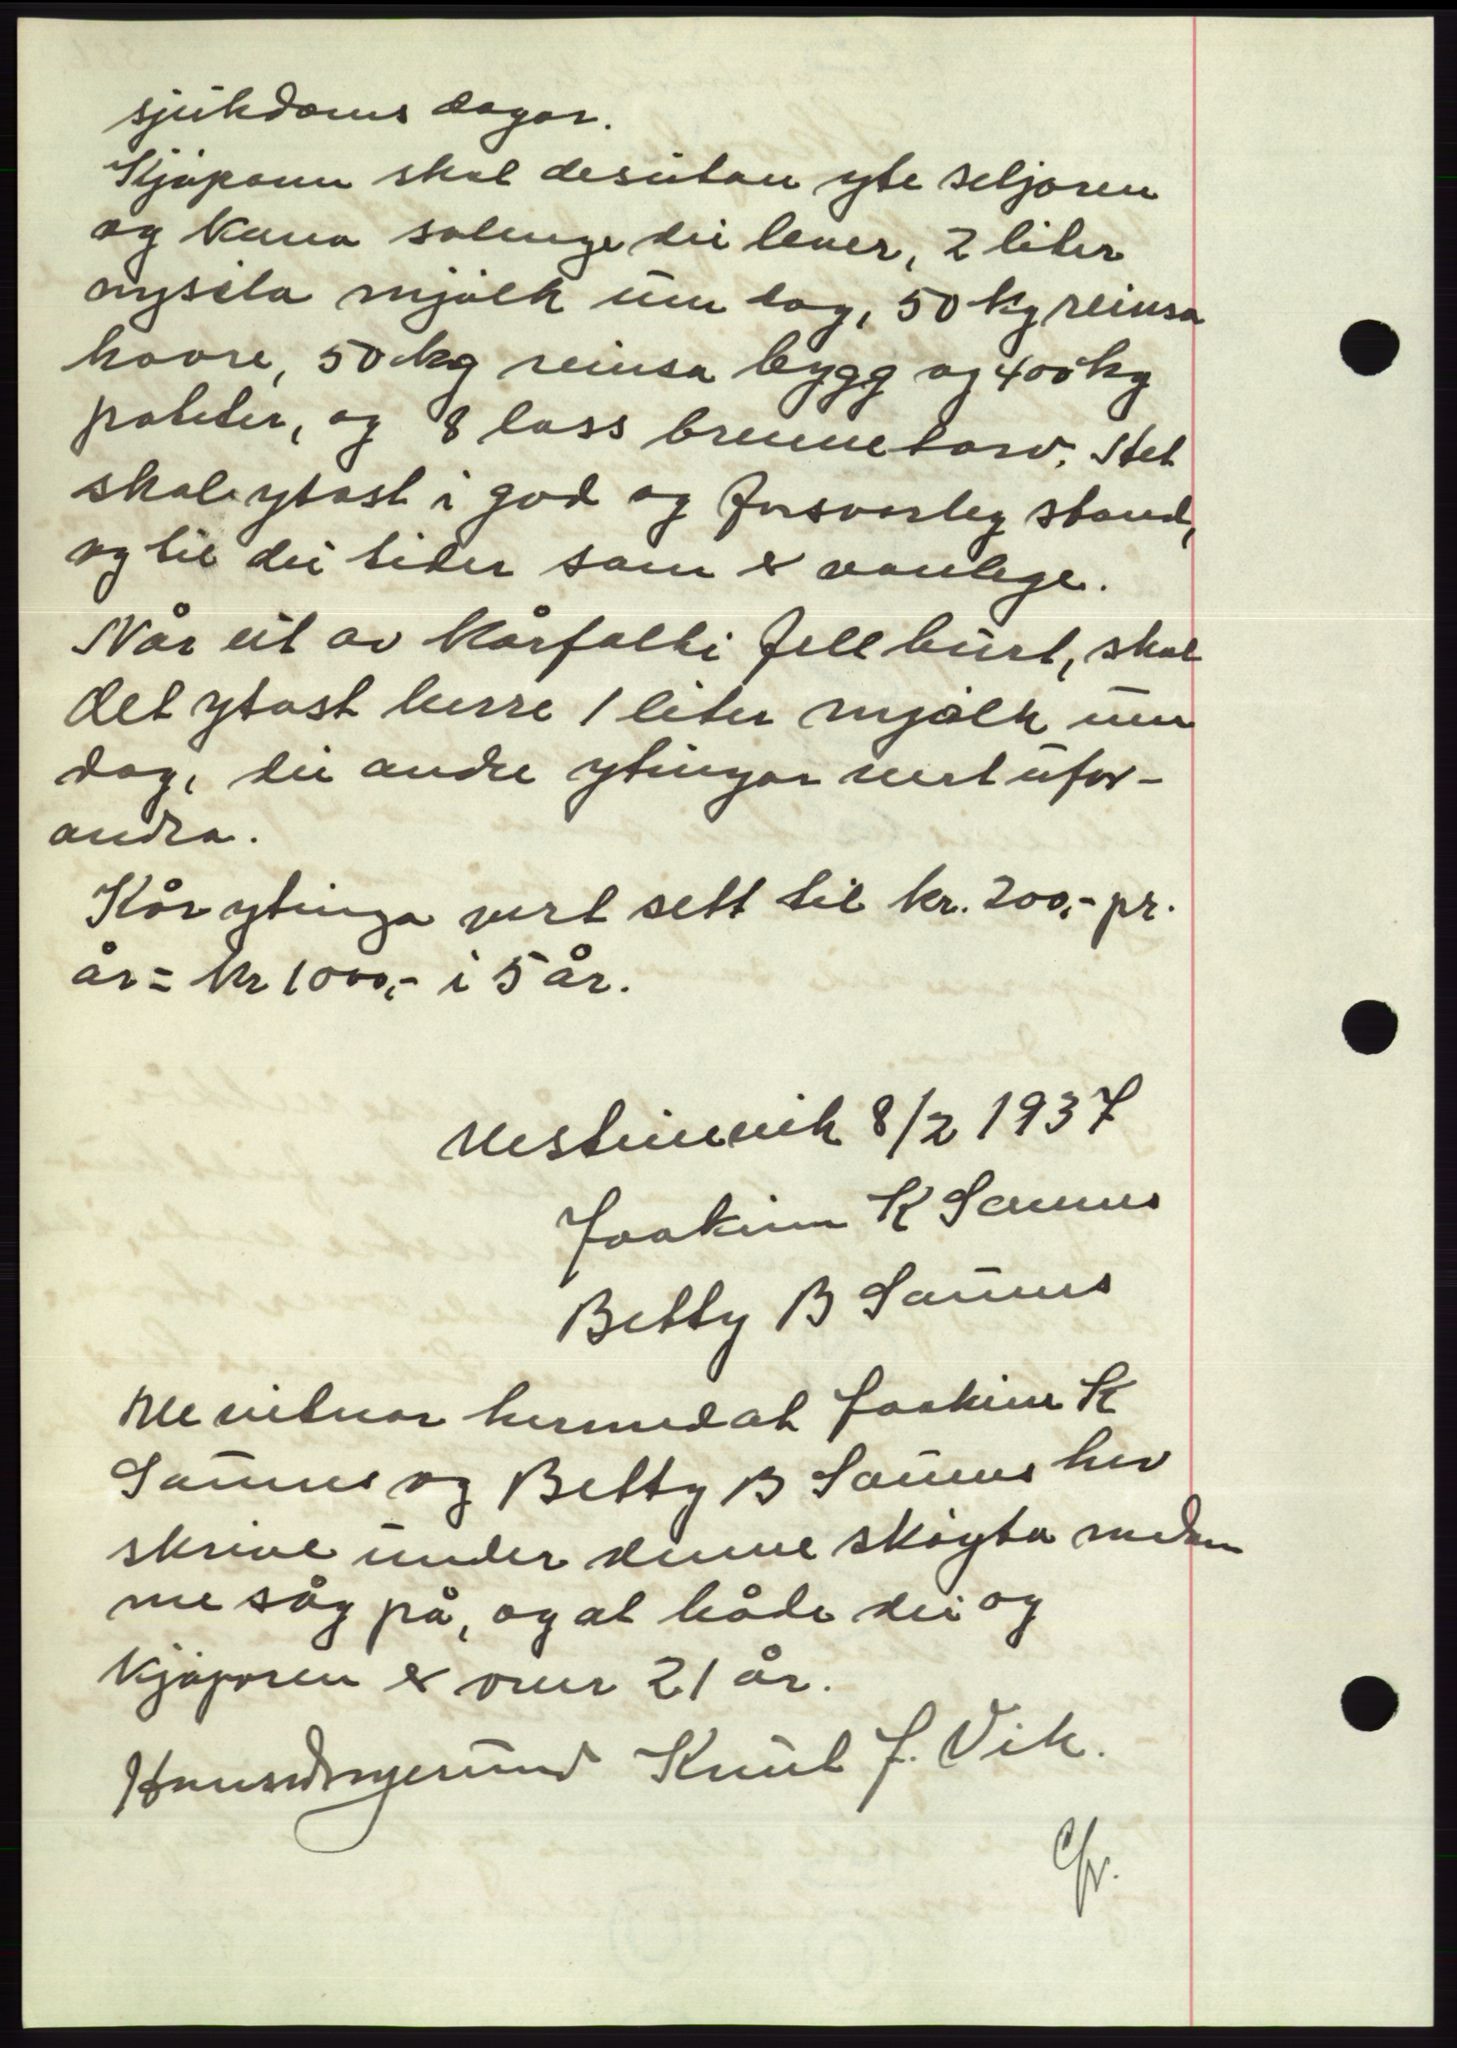 sjukdoms dagar.
Kjøparen skal desutan yte seljaren
og kona solenge dei lever, 2 liter
nysila mjølk um dag, 50 kg reinsa
havre, 50 kg reinsa bygg og 400 kg
poteter, og 8 lass brennetorv. Alt
skal ytast i god og forsvarleg stand,
og til dei tider som er vanlege.
Når eit av kårfolki fell burt, skal
det ytast berre 1 liter mjølk um
dag, dei andre ytingar vert ufor-
andra.
Kår ytinga vert sett til kr. 200,- pr.
år = kr 1000,- i 5 år.
Vestrevik 8/2 1937
Joakim K Saunes
Betty B Saunes
Me vitnar hermed at Joakim K
Saunes og Betty B Saunes hev
skrive under denne skøyta medan
me såg på, og at både dei og
kjøparen er over 21 år.
Knut J. Vik.